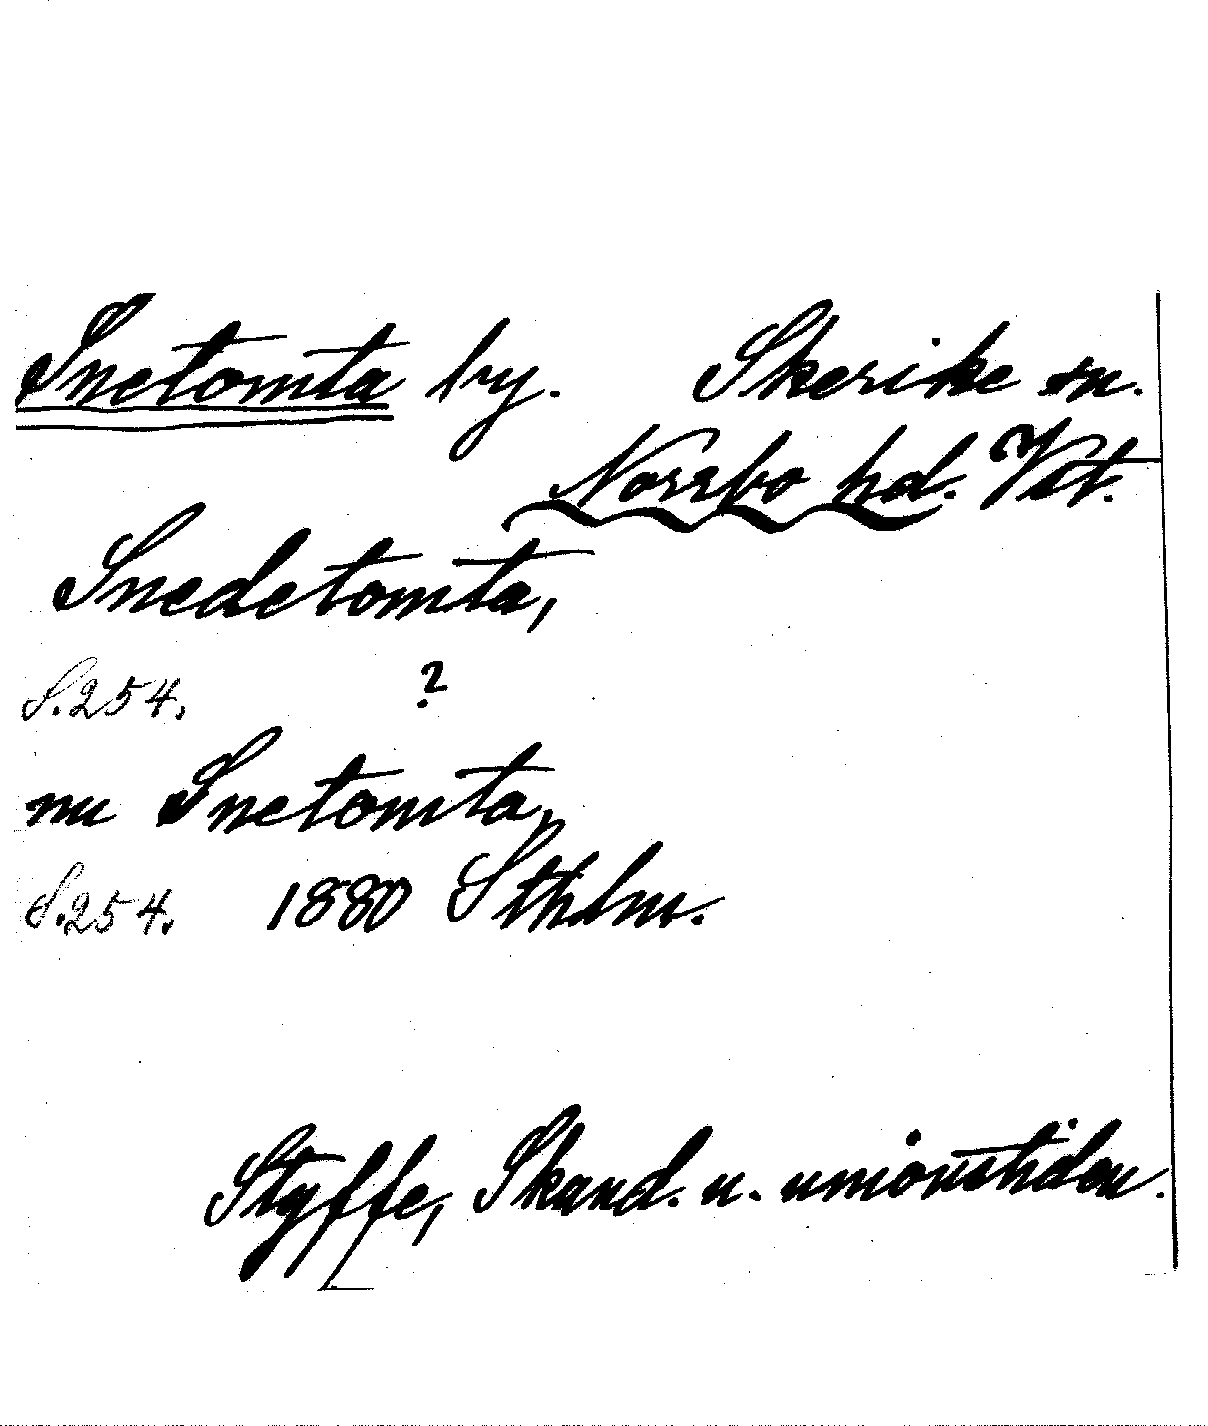 Snetomta by. Skerike sn.
Norrbo hd. Vstm.
Snedetomta,
S.254. ?
nu Snetomta,
S.254. 1880 Sthlm.
Styffe, Skand. u. unionstiden.